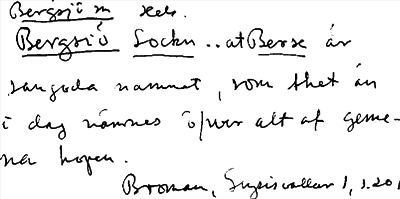 Bergsjö sn Hels.
Bergsiö Sockn .. at Berse är
sangoda namnet, som thet än
i dag nämnes öfwer alt af geme-
na hopen.
Broman, Glysisvallur 1, s. 201